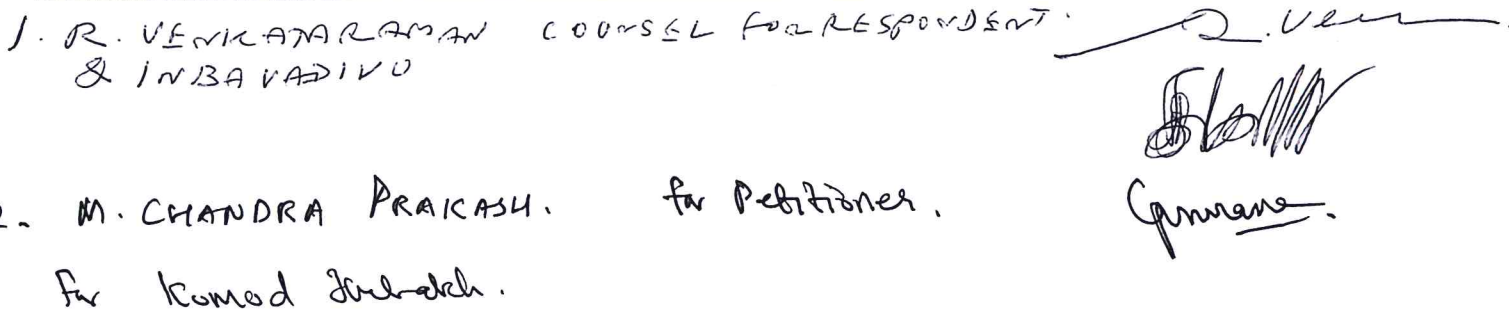 1. R. VENKATARAMAN COUNSEL FOR RESPONDENT. R. Ven
& INBAVADIVU
2. M. CHANDRA PRAKASH. for Petitioner.
for Komod